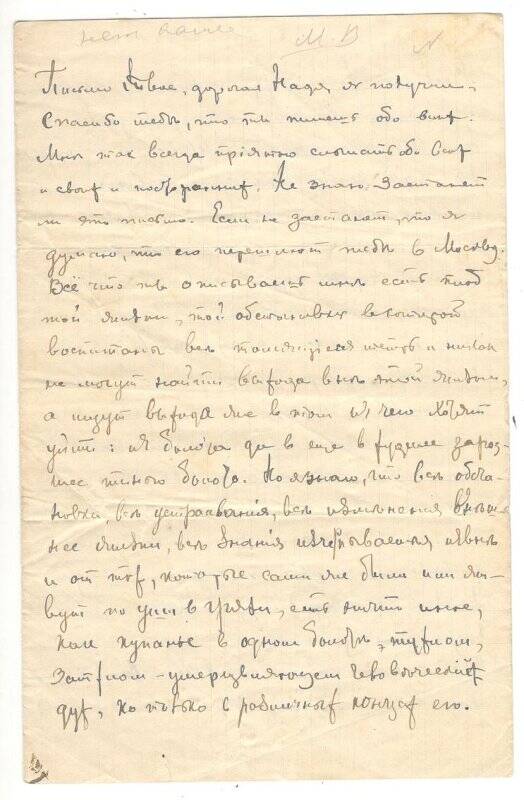 М. В
Письмо Твое, дорогая Надя, я получил,
Спасибо тебѣ, что ты пишешь обо всѣх.
Мнѣ так всегда прiятно слышать обо всѣх
и своих и посторонних. Не знаю застанет
ли это письмо. Если не застанет, то я
думаю, что его перешлют тебѣ в Москву.
Всё что ты описываешь мнѣ есть плод
той жизни, той обстановки в которой
воспитаны всѣ томящiеся и никак
не могут найти выхода в этой жизни,
а ищут выхода же в том из чего хотят
уйти: из болота да в еще в худшее зарос-
шее тиною болото. Но я знаю, что всѣ обста-
новки, всѣ устраиванiя, всѣ измѣненiя внѣш-
нее жизни, всѣ знанiя
и от тѣх, которые сами же были или жи-
вут по уши в грязи, есть ничто иное,
как купанье в одном болотѣ, тухлом,
затхлом - умерщвляющем человѣческий
дух, но только с различных концах его.